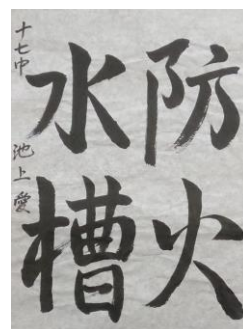 防火
水槽
十七中 池上愛